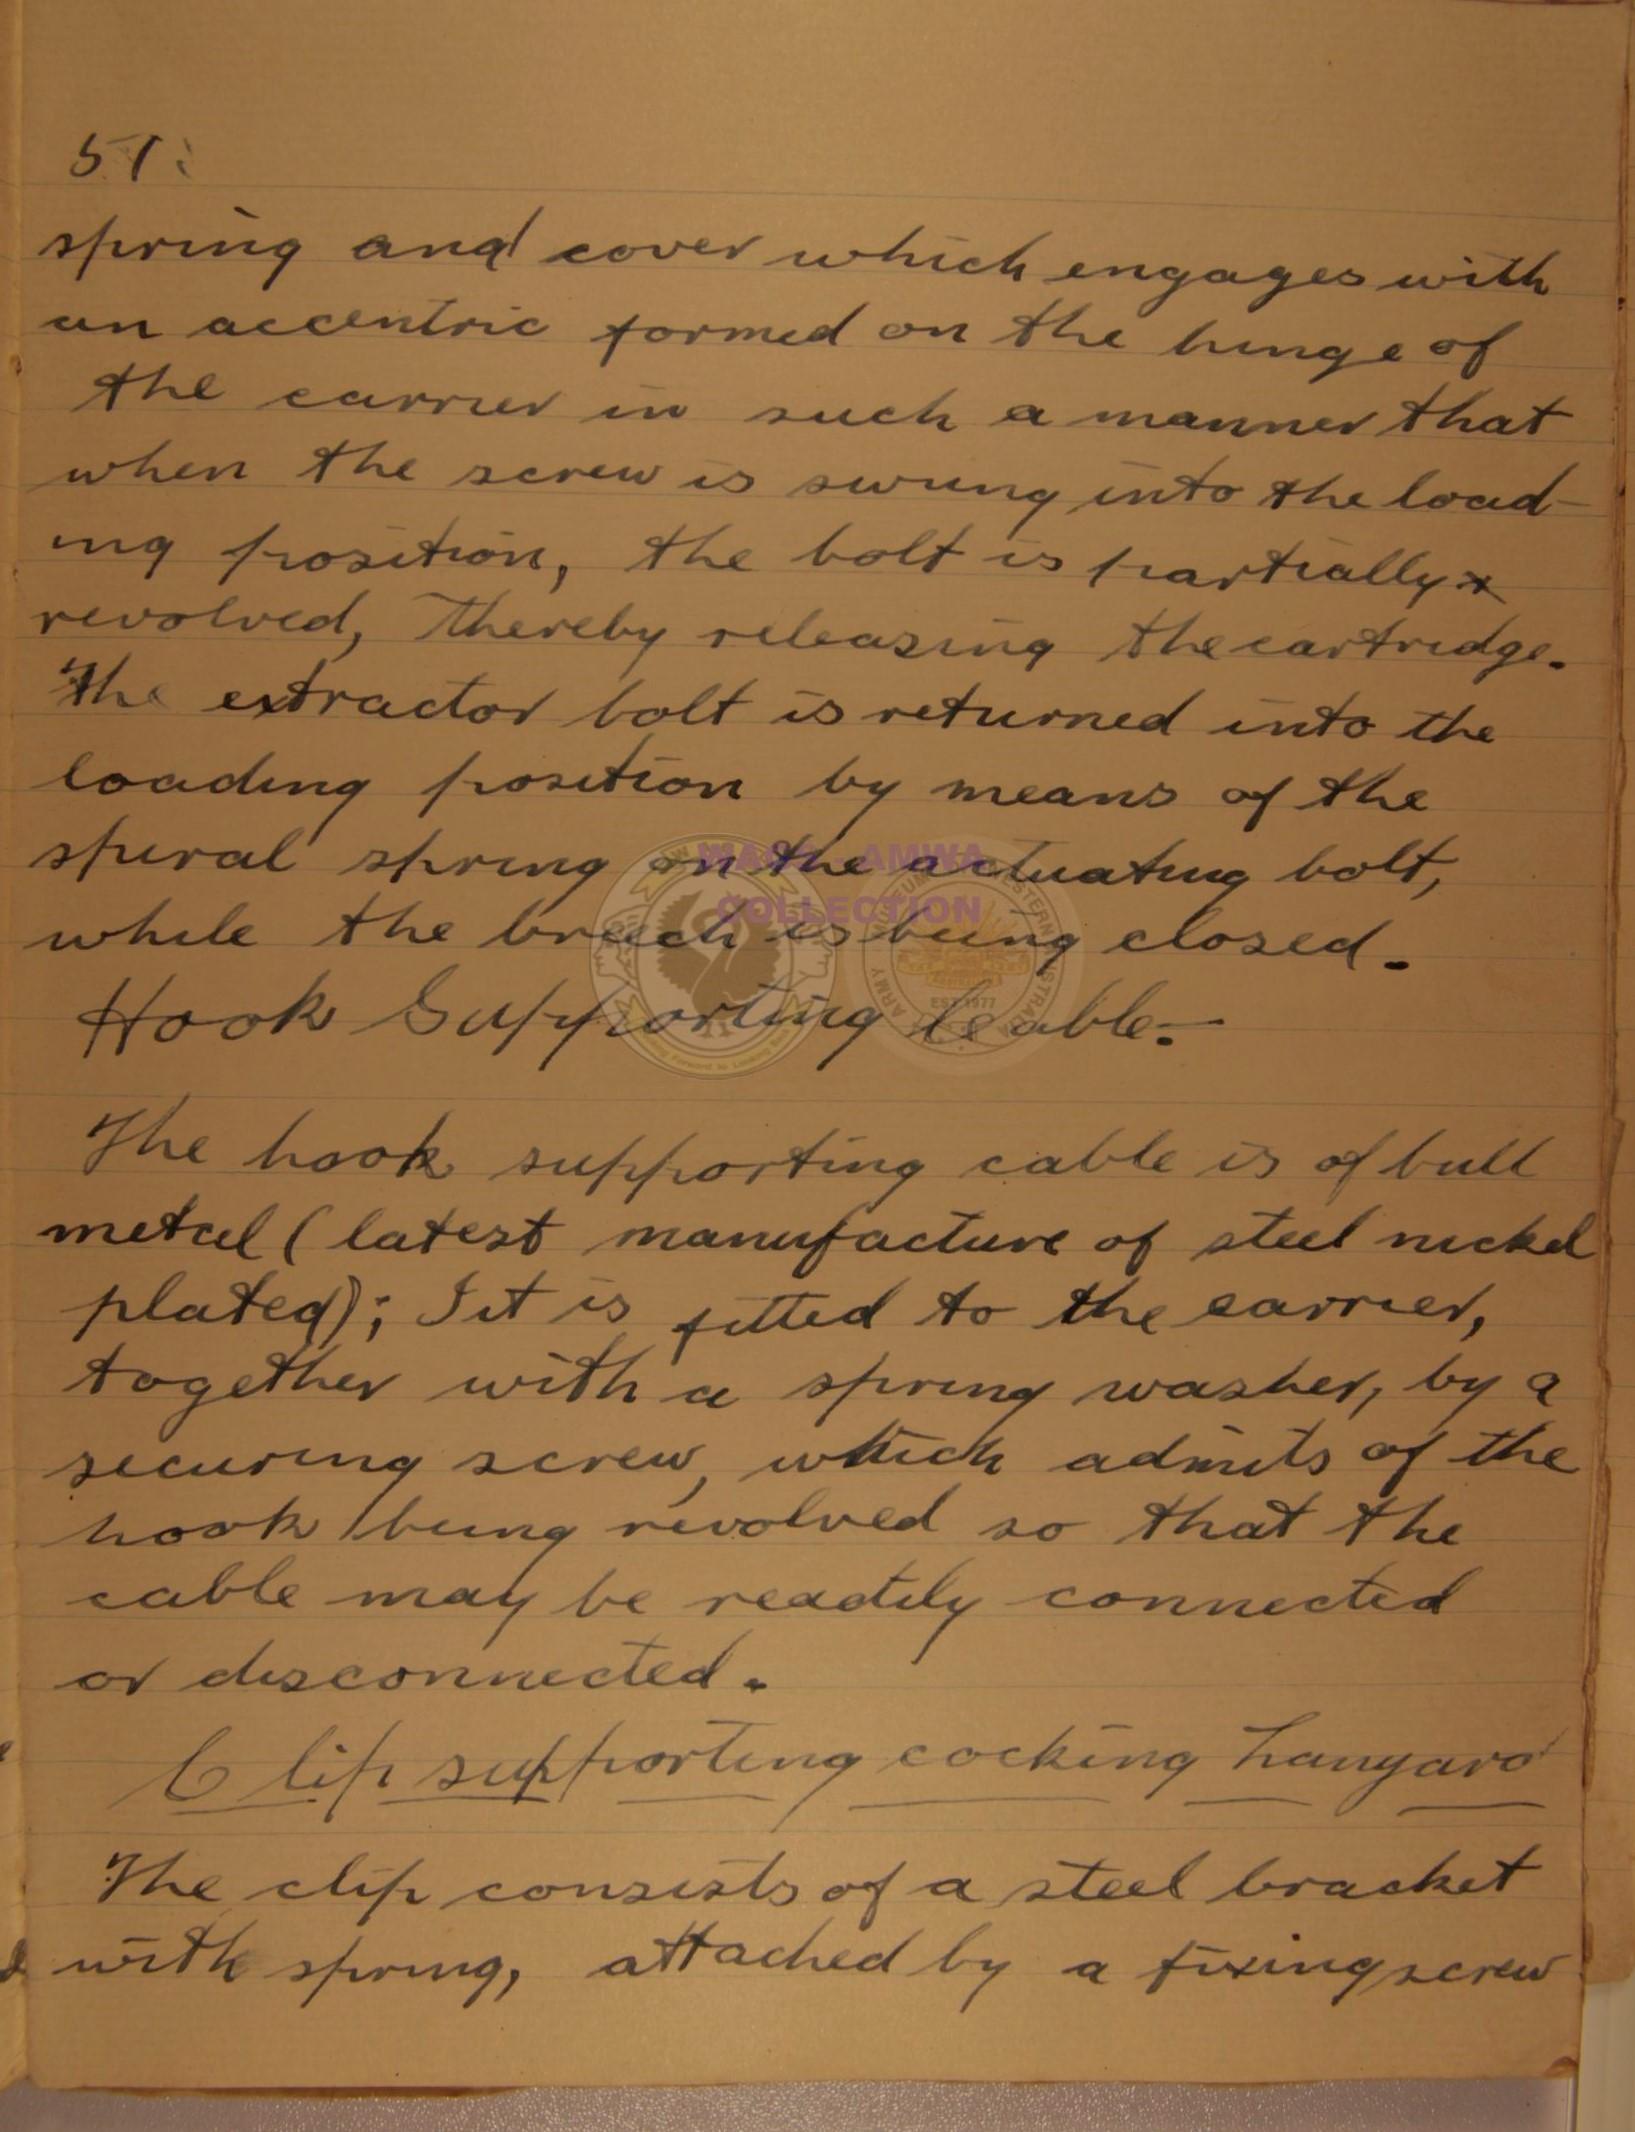 51.
spring and cover which engages with
an accentric formed on the hinge of
the carrier in such a manner that
when the screw is swung into the load-
ing position, the bolt is partially
revolved, thereby releasing the cartridge.
The extractor bolt is returned into the
loading position by means of the
spiral spring on the actuating bolt,
while the breech is being closed.
Hook Supporting Cable:-
The hook supporting cable is of bull
metal (latest manufacture of steel nickel
plated); It is fitted to the carrier,
together with a spring washer, by a
securing screw, which admits of the
hook being revolved so that the
cable may be readily connected
or disconnected.
Clip supporting cocking Lanyard
The clip consists of a steel bracket
with spring, attached by a fixing screw
WAGA - AMWA
COLLECTION
EST 1977